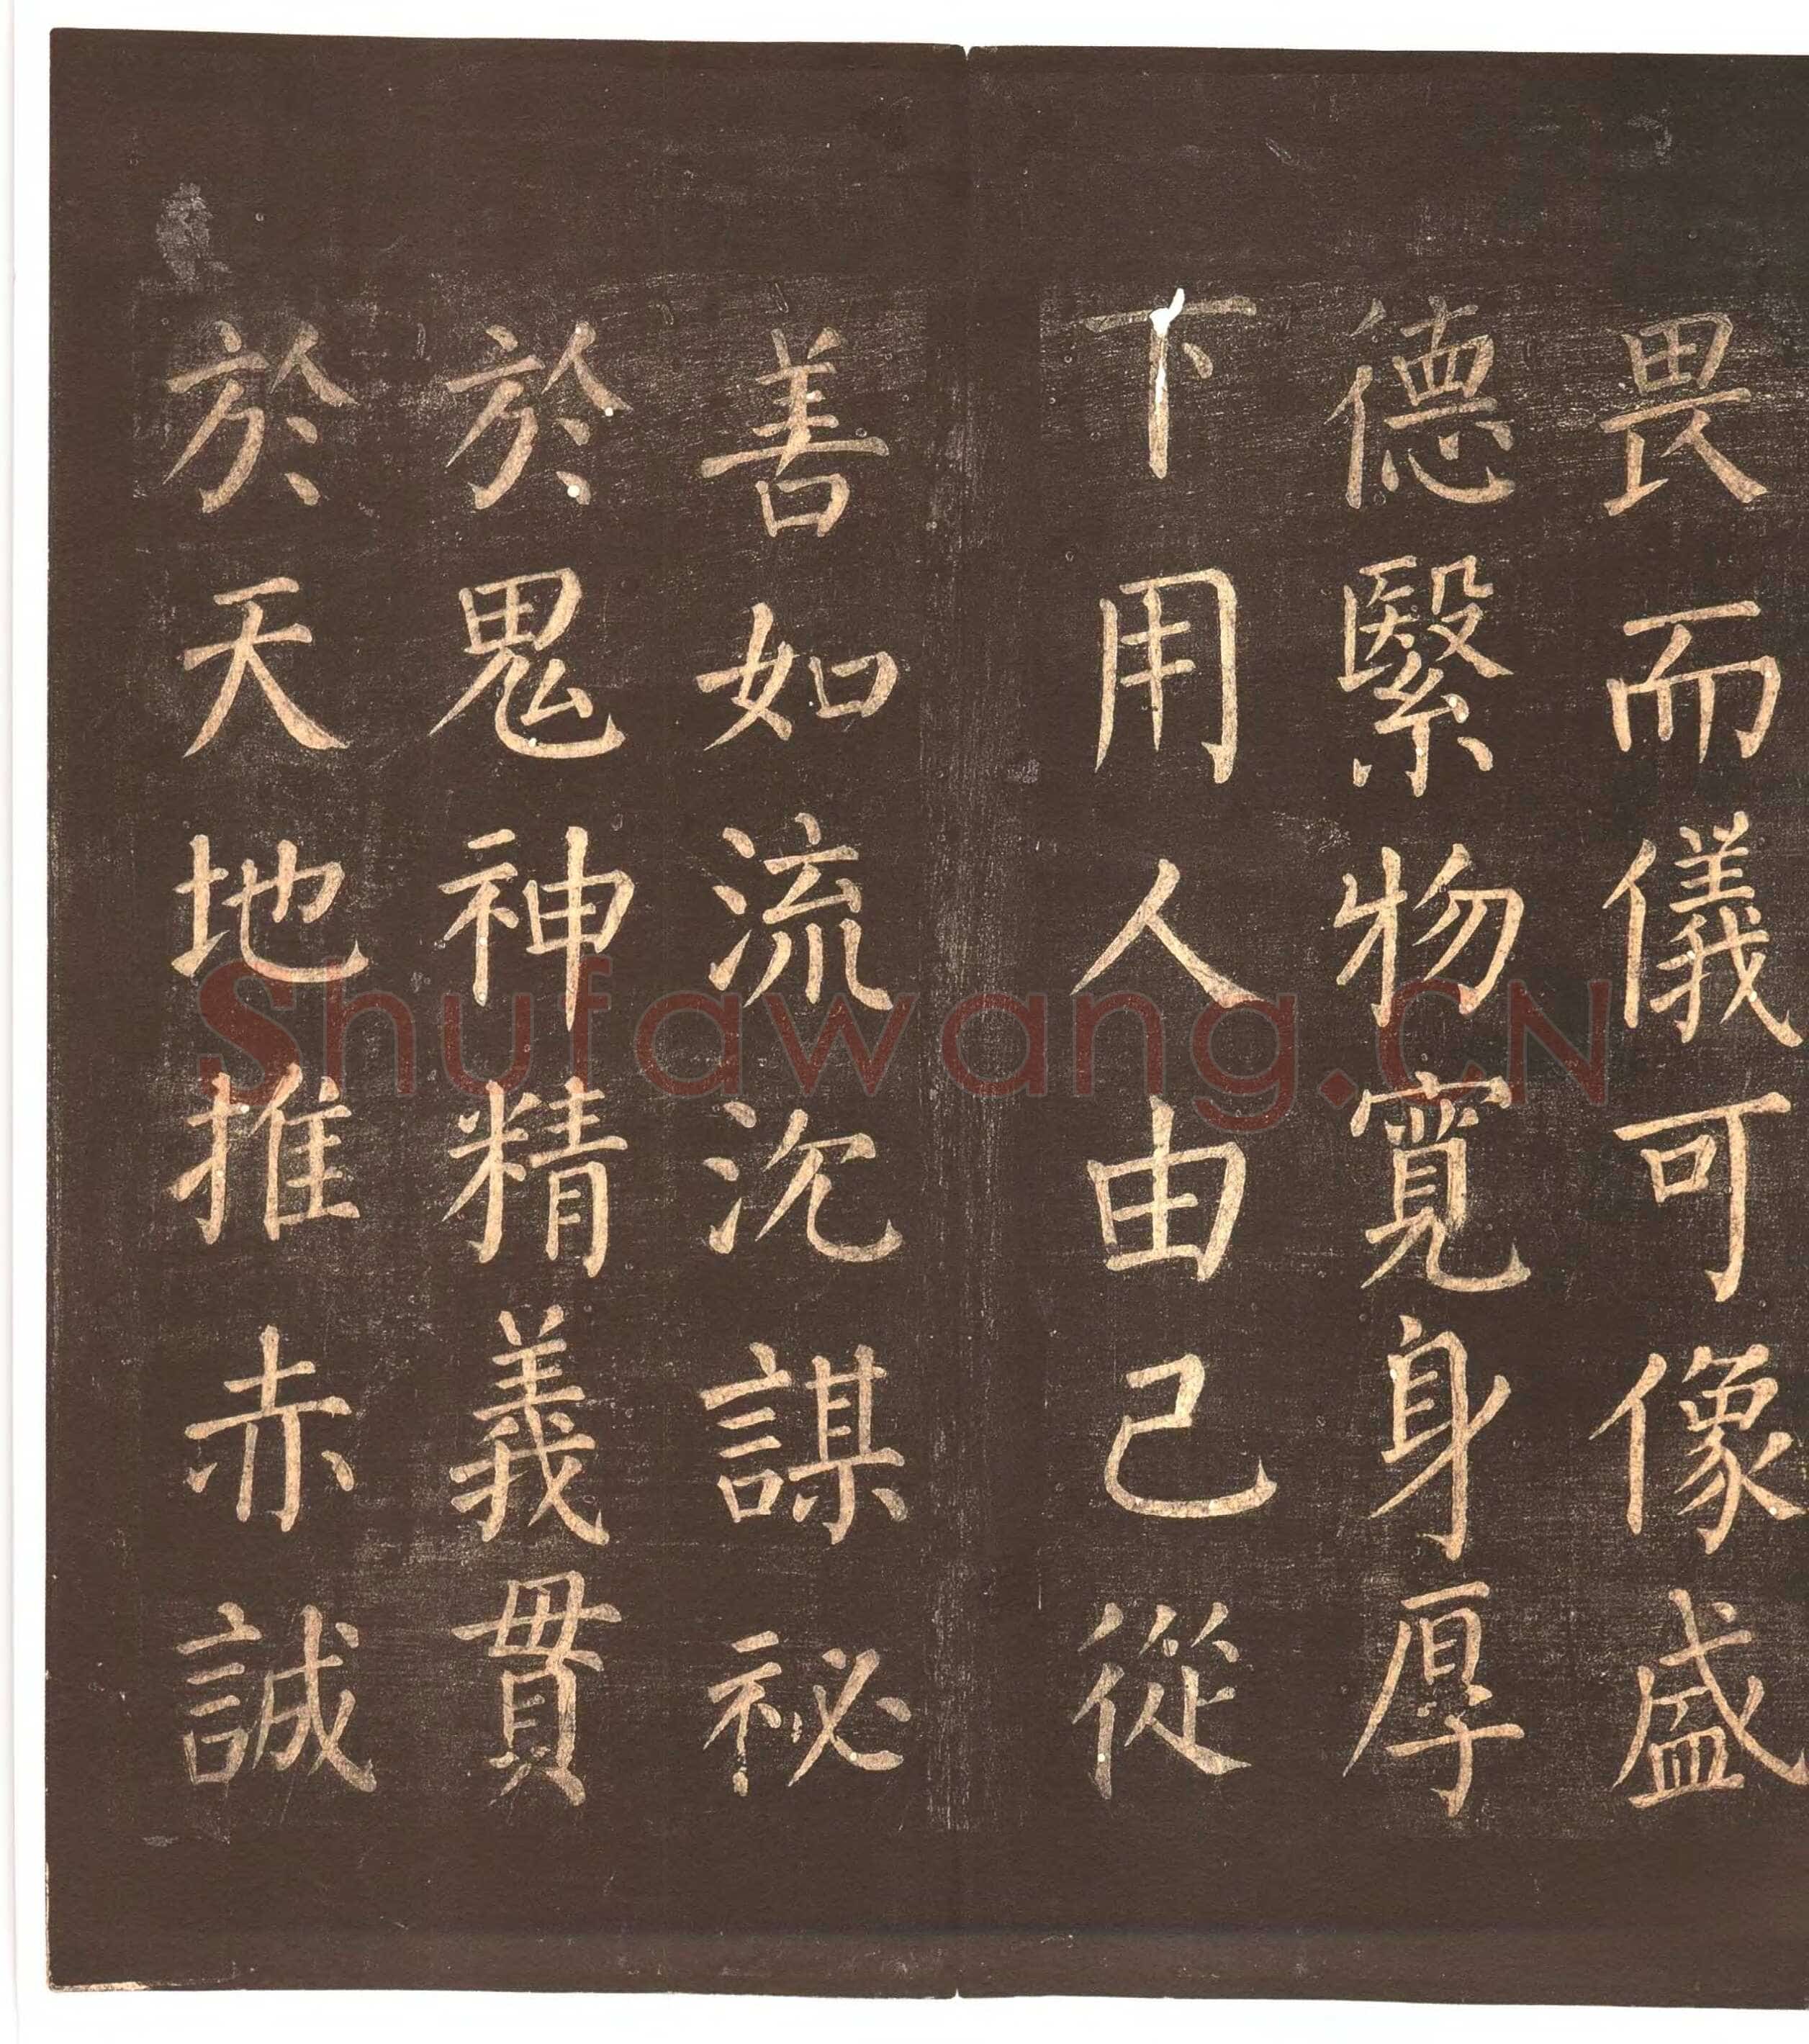 畏而儀可像盛
德繄物寬身厚
下用人由己從
善如流沉謀祕
於鬼神精義貫
於天地推赤誠
Shufawang.CN